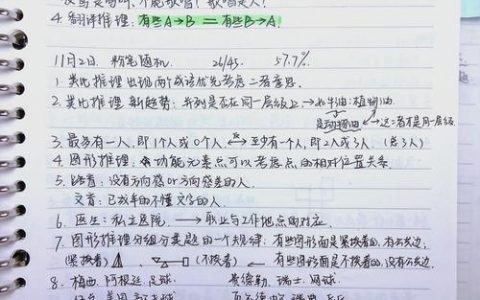 4. 翻译推理:有些A→B = 有些B→A.
11月2日. 粉笔随机. 26/45. 57.7%.
1. 类比推理出现两个成语优先考虑二者意思.
2. 类比推理新趋势:并列是否在同一层级上→牛油:植物油
是动物油 这二者不是同一层级
3. 最多有一人,即1个人或0个人, 至少有一个人,即2人或3人(总3人)
4. 图形推理:功能元素点可以考虑点的相对位置关系.
5. 路盲:没有方向感or方向感差的人.
文盲:已成年的不懂文字的人.
6. 医生:私立医院. →职业与工作地点的对应.
7. 图形推理分组分类题的一个规律:有些图形面是紧挨着的,有公共边,
(紧挨着) (不挨着) 有些图形面是不挨着的,没有公共边
8. 梅西,阿根廷,足球. 费德勒,瑞士,网球.